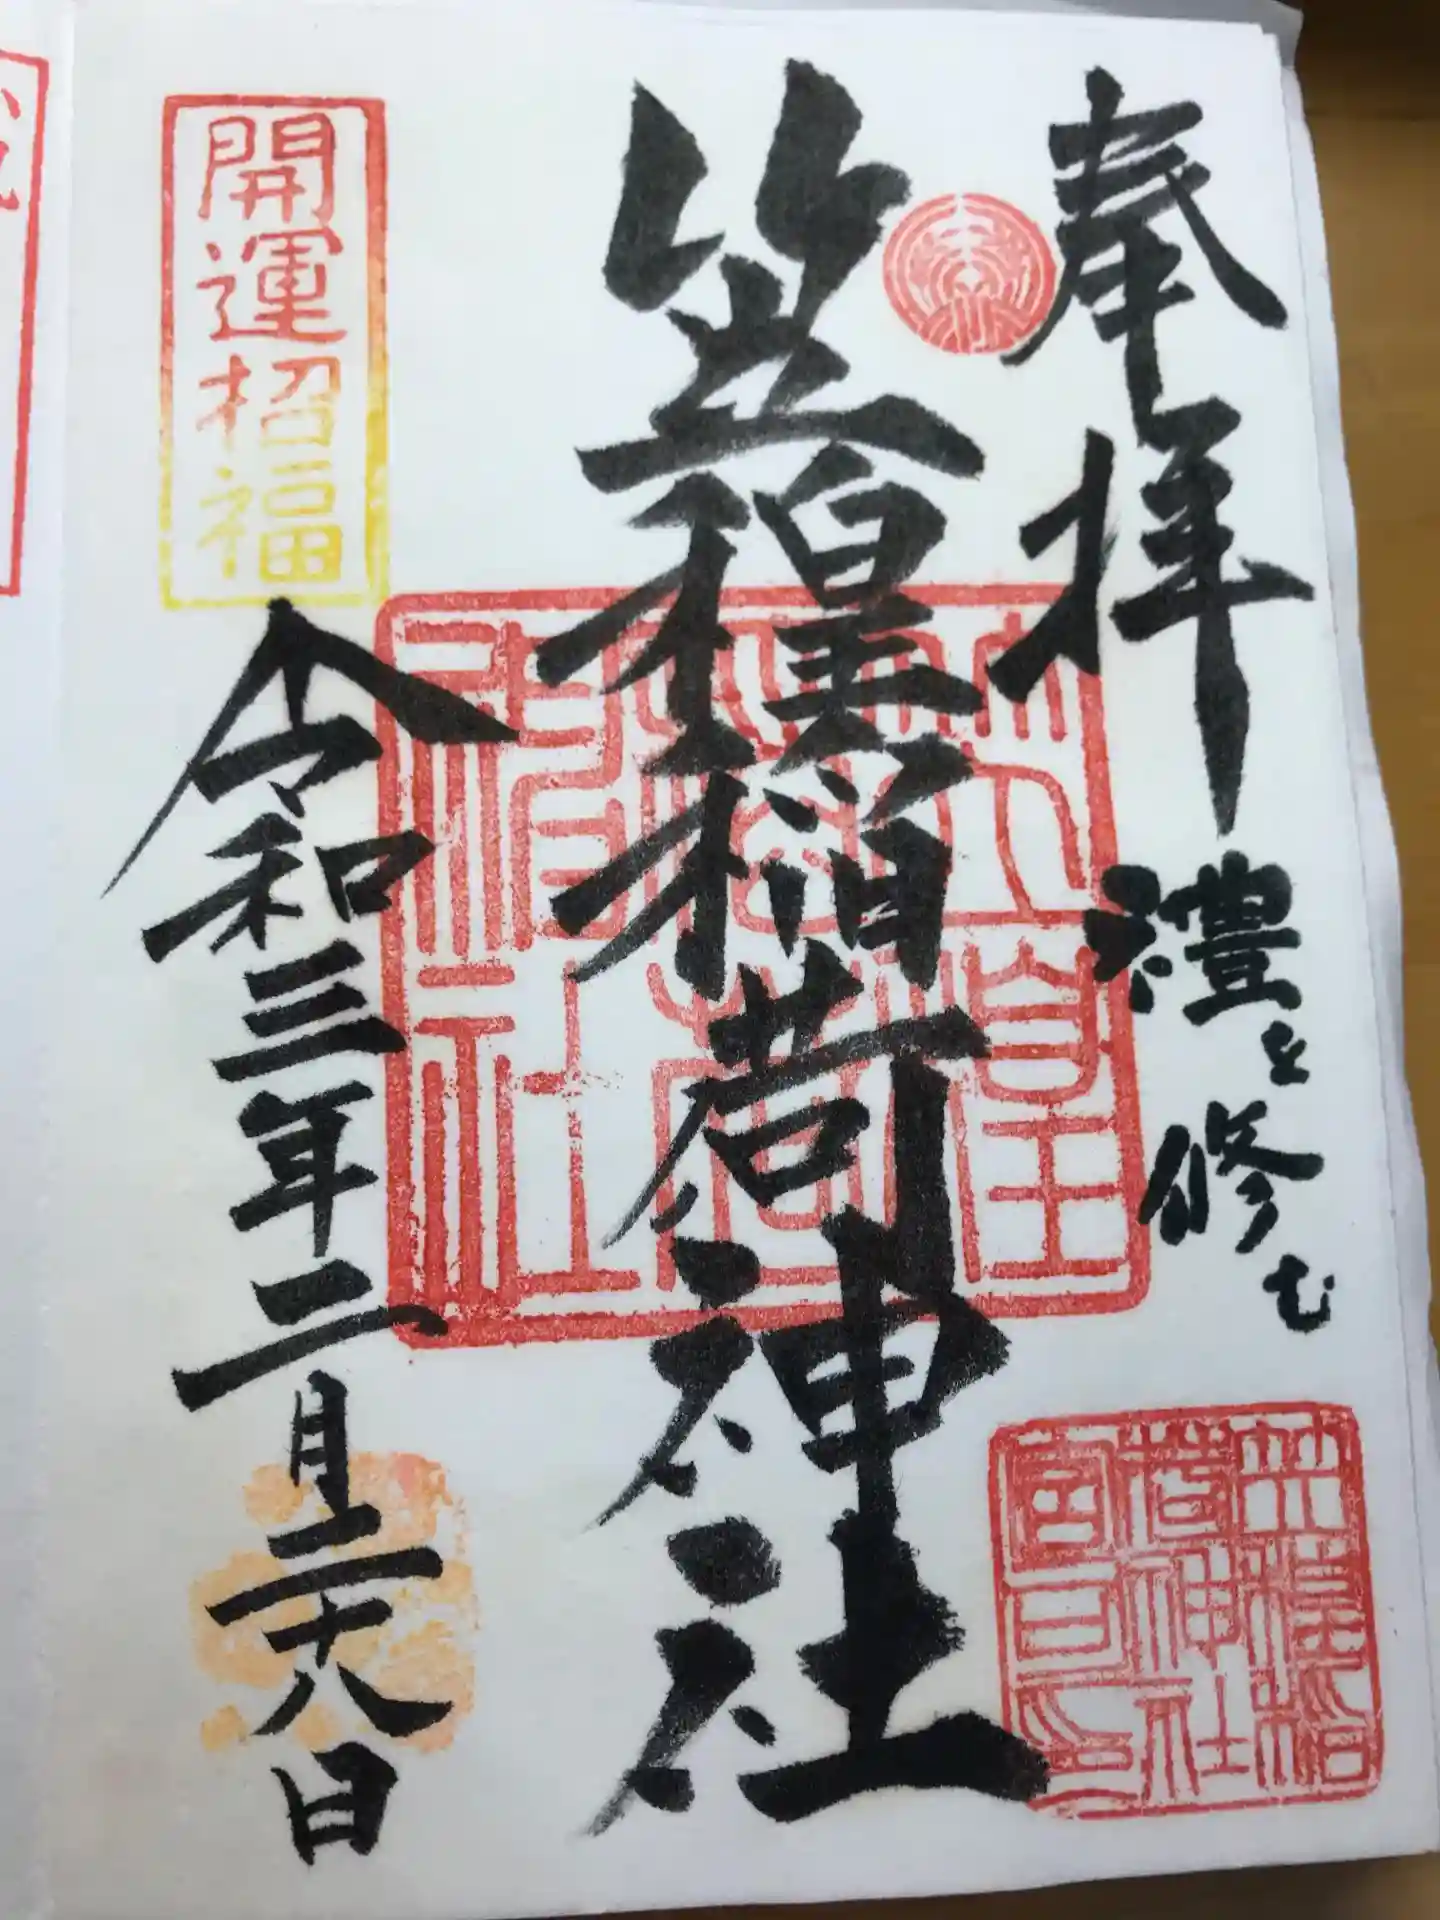 奉拝
禮を修む
笠䅣稲
荷神社
宮司印
笠䅣稲荷神社
笠䅣
稲荷
神社
開運招福
令和三年二月二十八日